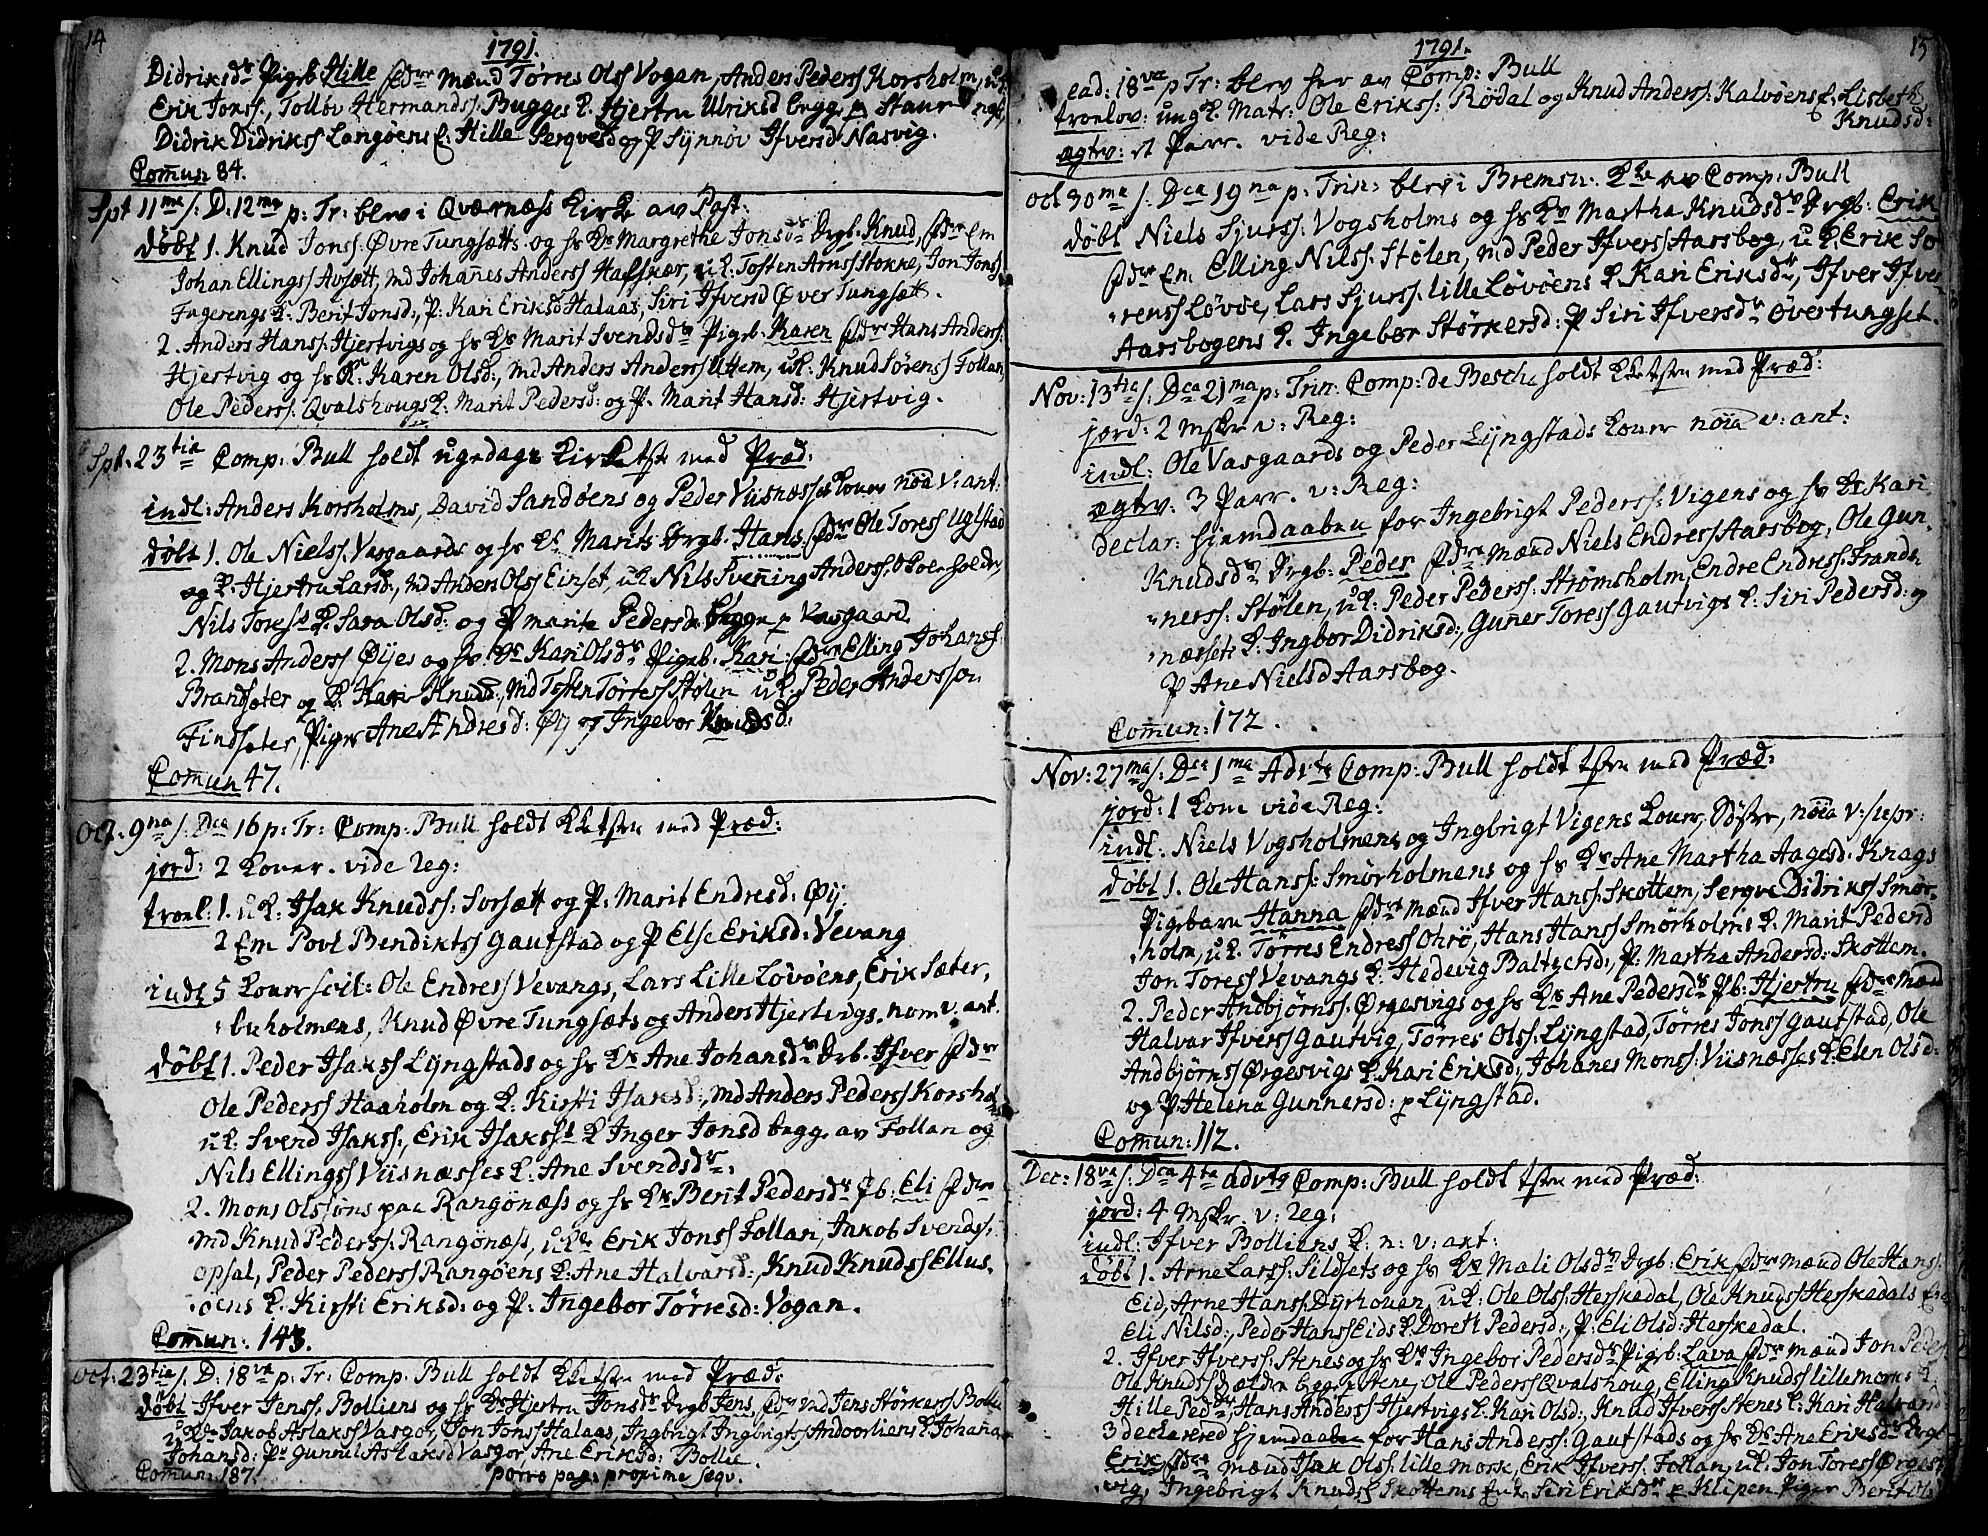 14
1791.
Didriksdr Pigeb. Hille fadr mænd Torres Olss Vogan, Anders Pederss Korsholm,
Erik Jonss:, Tollov Hermandss: Bugges K. Hjertru Ulriksd begge p Staur
Didrik Didrikss Langøens K: Hille Serqvesd og P Synnøv Ifversd Nasvig.
Comun 84.
Spt 11ma s. D: 12ma p: Tr: blev i Qværness Kirke av Past:
döbt 1. Knud Jonss: Øvre Tungsætts og hs Ks Margrethe Jonsds Drgb: Knud, fadr Em
Johan Ellingss Avsætt, md Johanes Anderss Hafskær, uK. Tosten Arnss Stokke, Jon Jonss
Fagerengs K: Berit Jonsd:, P: Kari Eriksd Halaas, Siri Ifversd Øver Tungsætt.
2. Anders Hanss: Hjertvigs og hs Ks Marit Svendsdr Pigeb. Karen fadr Hans Anderss:
Hjertvig og hs K: Karen Olsd:, md Anders Anderss Uttem, uK: Knud Sørenss Follan
Ole Pederss: Qvalshougs K: Marit Pedersd: og P. Marit Hansd: Hjertvig.
Spt. 23tia Comp: Bull holdt ugedags Kirketste med Præd:
indl: Anders Korsholms, David Sandøens og Peder Viisnæsses Koner noia v: ant:
döbt 1. Ole Nielss. Vasgaards og hs Ks Marits Drgb. Hans fadr Ole Toress Uglstad
og K: Hjertru Larsd:, md Anders Olss Einset, uK: Nils Svenning Anderss
Nils Toress K. Sara Olsd: og P Marite Pedersd: begge p Vasgaard
2. Mons Anderss Øijes og hs Ks Kari Olsdr Pigeb. Kari: fadr Elling Johanss
Brandseter og K: Kari Knudsd:, md Tosten Torress Stølen uK: Peder Andersson
Findseter, Piger Ane Andresd: Øij og Ingebor Knudsd:
Comun 47.
Oct. 9na s. Dca 16 p: Tr: Comp: Bull holdt KKetste med Præd:
jord: 2 Koner. vide Reg:
troel: 1. uK: Isak Knudss: Sorsætt og P: Marit Endresd: Øij.
2 Em Povl Bendiktss Gautstad og P Else Eriksd: Vevang
indl 5 Koner scil: Ole Endress Vevangs, Lars Lille Lovøens, Erik Sæter,
buholmens, Knud Øvre Tungsæts og Anders Hjertvigs. nom v. ant.
döbt 1. Peder Isakss Lyngstads og hs Ks Ane Johansdr Drb. Ifver fadr
Ole Pederss Haaholm og K: Kirsti Isaksd:, md Anders Pederss Korshol
uK: Svend Isakss:, Erik Isakss K Inger Jonsd begge av Follan og
Nils Ellingss Viisnæsses K: Ane Svendsdr.
2. Mons Olssøns paa Rangønæss og hs Ks Berit Pedersdr Pb: Eli fadr
md Knud Pederss: Rangønæss, uK Erik Jonss Follan, Jakob Svendss:
opsal, Peder Pederss Rangøens K: Ane Halvarsd:, Knud Knudss Ellus.
øens K. Kirsti Eriksd: og P: Ingebor Torresd: Vogan.
Comun: 143.
Oct: 23tia s. D: 18va p: Tr: Comp: Bull holdt KKetste med Præd:
döbt Ifver Jenss: Bolliens og hs Ks Hjertru Jonsdr Drgb Jens, fadr md Jens Størkerss Bollie
uK Jakob Aslakss Vasgor, Jon Jonss Halaas, Ingbrigt Ingbrigtss Andoorliens K Johana
Johansd: Pr Gunnel Aslaksd Vasgor, Ane Eriksd: Bollie.
Comun: 187.
porro pag: proxime seqv.
15
1791.
ead: 18va p Tr: blev her av Comp: Bull
troelov: ung K. Matr: Ole Erikss: Rødal og Knud Anderss: Kalvøens E. Lisbeth
Knudsd:
ægtev: et Parr. vide Reg:
Oct 30ma s. Dca 19na p: Trin: blev i Bremsn: KKe av Comp: Bull
Döbt Niels Sjurss: Vogsholms og hs Ks Martha Knudsdr Drgb. Erik
fadr Em Elling Nilss: Stølen, md Peder Ifverss Aarsbog, uK. Erik So
rens Løvøe, Lars Sjurss: Lille Løvøens K. Kari Eriksdr, Ifver Ifver
Aarsbogens K. Ingebor Størkersd: P Siri Ifversdr Øvertungset.
Nov: 13tia s. Dca 21ma p: Trin: Comp: de Besche holdt KKetste med Præd:
jord: 2 Mskr v: Reg:
indl: Ole Vasgaards og Peder Lyngstads Koner noia v: ant:
ægtev: 3 Parr. v: Reg:
declar: hjemdaaben for Ingebrigt Pederss: Vigens og hs Ks Kari
Knudsdr Drgb: Peder fadre mænd Niels Endress Aarsbog, Ole Gun
nerss: Stølen, uK: Peder Pederss: Strømsholm, Endre Endress: Frands
næssets K: Ingbor Didriksd:, Guner Toress Gautvigs K: Siri Pedersd: og
P Ane Nielsd Aarsbog.
Comun: 172.
Nov: 27ma s. Dca 1ma Advts Comp: Bull holdt tste med Præd:
jord: 1 Kone vide Reg:
indl: Niels Vogsholmens og Ingbrigt Vigens Koner, noia v: supr:
döbt 1. Ole Hanss: Smørholmens og hs Ks Ane Martha Aagesd: Knags
Pigebarn Hanna fadre mænd Ifver Hanss: Skottem, Serqve Didrikss Smør
holm, uK. Torres Endress Ohrø, Hans Hanss Smørholms K. Marit Pedersd
Jon Toress Vevangs K. Hedevig Baltzersd:, P. Martha Andersd: Skottem.
2. Peder Andbjørnss: Ørgesvigs og hs Ks Ane Pedersdr Pb: Hjertru fadre mænd
Halvar Ifverss Gautvig, Torres Olss: Lyngstad, Torres Jonss Gautstad, Ole
Andbjørnss Ørgesvigs K. Kari Eriksd:, Johanes Monss: Viisnæsses K: Elen Olsd:
og P. Helena Gunnersd: p Lyngstad.
Comun: 112.
Dec: 18va s. Dca 4ta advts Comp: Bull holdt tste med Præd:
jord: 4 Mskr. v: Reg:
indl: Ifver Bolliens K: n: v: ant:
döbt 1. Arne Larss: Sildsets og hs Ks Mali Olsdr Drgb: Erik fadre mænd Ole Hanss:
Eid, Arne Hanss: Dyrhouen, uK: Ole Olss: Herskedal, Ole Knudss Herskedals
Eli Nilsd:, Peder Hanss Eids K. Doreth Pedersd:, P: Eli Olsd: Herskedal.
2. Ifver Ifverss: Stenes og hs Ks Ingebor Pedersdr Pigeb: Lava fadre mænd Jon Peder
Ole Knudss begge p Stene, Ole Pederss Qvalshoug, Elling Knudss Lillemorks K.
Hille Pedsdr, Hans Anderss Hjertvigs K: Kari Olsd:, Knud Ifverss Stenes K: Kari Halvard
3 declarered hjemdaaben for Hans Anderss: Gautstads og hs Ks Ane Eriksdr Drgb
Erik fadre mænd Isak Olss: Lille Mork, Erik Ifverss: Follan, uK: Jon Toress Ørges
vig, Ingebrigt Knudss Skottems Siri Eriksdr p Klipen Piger Berit Ols